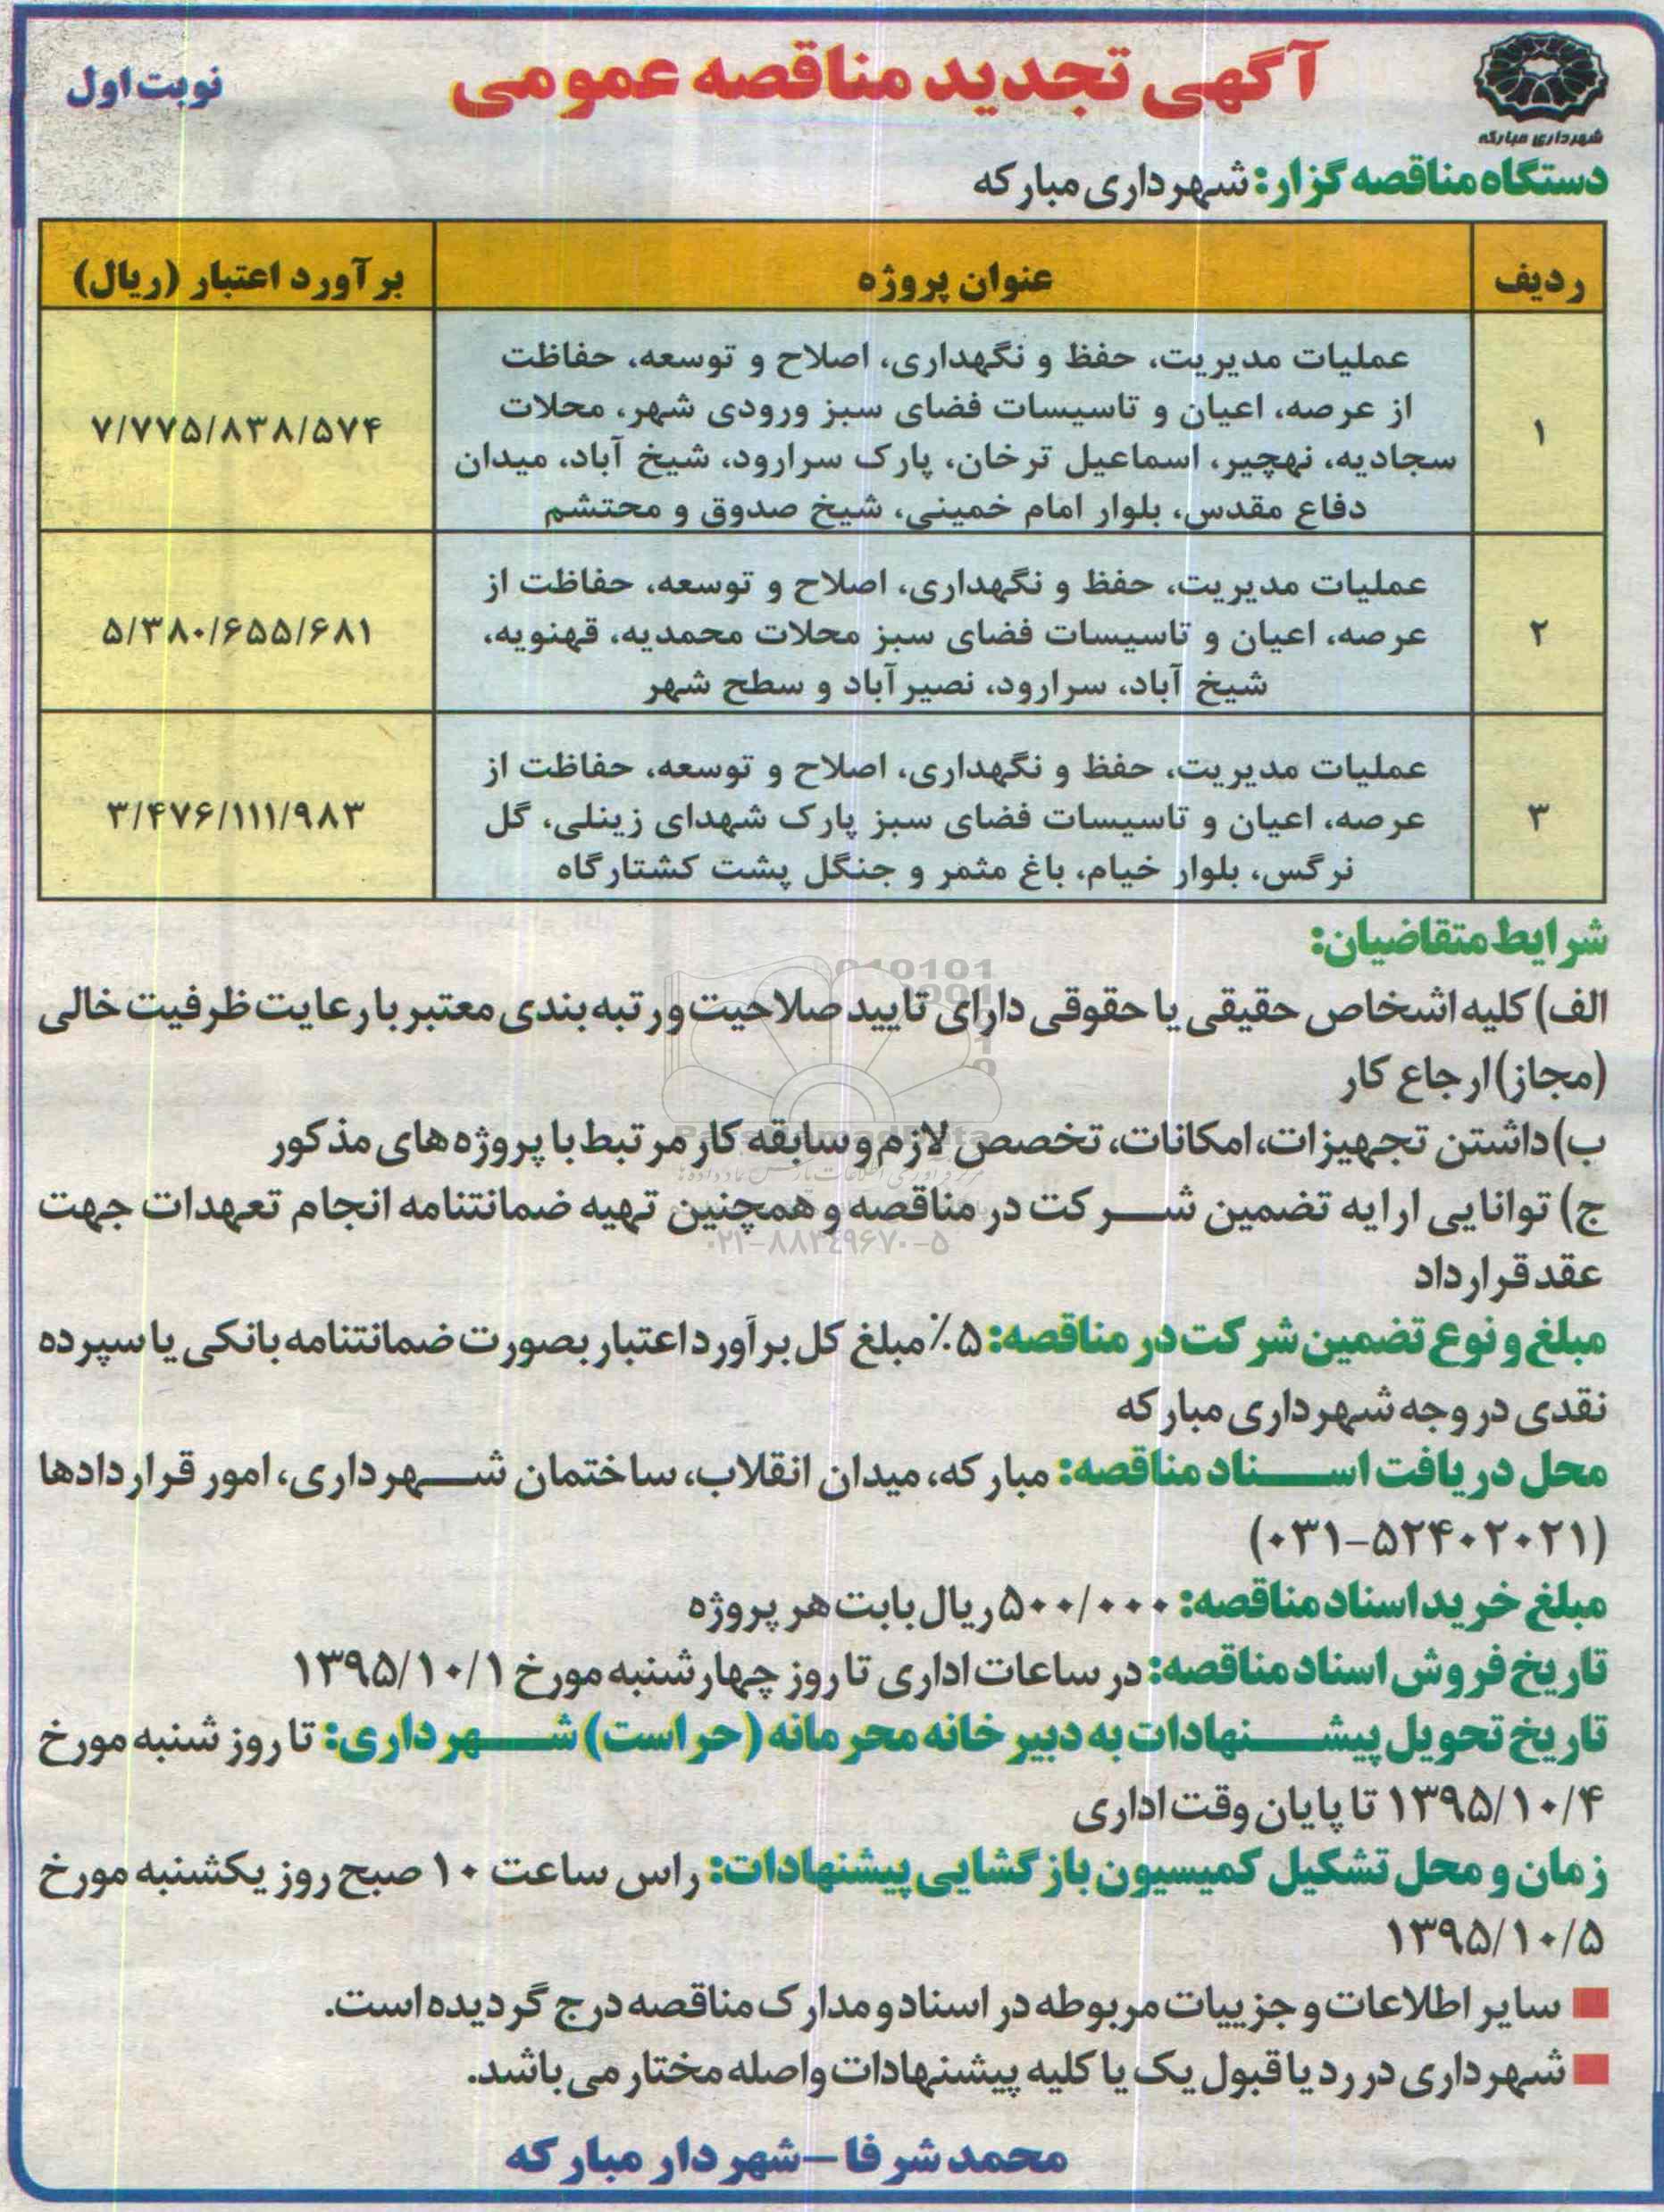 آگهی تجدید مناقصه عمومی
نوبت اول
شهرداری مبارکه
دستگاه مناقصه گزار: شهرداری مبارکه
ردیف	عنوان پروژه	برآورد اعتبار (ریال)
۱
عملیات مدیریت، حفظ و نگهداری، اصلاح و توسعه، حفاظت
از عرصه، اعیان و تاسیسات فضای سبز ورودی شهر، محلات
سجادیه، نهچیر، اسماعیل ترخان، پارک سرارود، شیخ آباد، میدان
دفاع مقدس، بلوار امام خمینی، شیخ صدوق و محتشم
۷/۷۷۵/۸۳۸/۵۷۴
۲
عملیات مدیریت، حفظ و نگهداری، اصلاح و توسعه، حفاظت از
عرصه، اعیان و تاسیسات فضای سبز محلات محمدیه، قهنویه،
شیخ آباد، سرارود، نصیرآباد و سطح شهر
۵/۳۸۰/۶۵۵/۶۸۱
۳
عملیات مدیریت، حفظ و نگهداری، اصلاح و توسعه، حفاظت از
عرصه، اعیان و تاسیسات فضای سبز پارک شهدای زینلی، گل
نرگس، بلوار خیام، باغ مثمر و جنگل پشت کشتارگاه
۳/۴۷۶/۱۱۱/۹۸۳
شرایط متقاضیان:
الف) کلیه اشخاص حقیقی یا حقوقی دارای تایید صلاحیت و رتبه بندی معتبر با رعایت ظرفیت خالی
(مجاز) ارجاع کار
ب) داشتن تجهیزات، امکانات، تخصص لازم و سابقه کار مرتبط با پروژه های مذکور
ج) توانایی ارایه تضمین شرکت در مناقصه و همچنین تهیه ضمانتنامه انجام تعهدات جهت
۰۲۱-۸۸۳۴۹۶۷۰-۵
عقد قرارداد
مبلغ و نوع تضمین شرکت در مناقصه: ۵٪ مبلغ کل برآورد اعتبار بصورت ضمانتنامه بانکی یا سپرده
نقدی در وجه شهرداری مبارکه
محل دریافت اسناد مناقصه: مبارکه، میدان انقلاب، ساختمان شهرداری، امور قراردادها
(۰۳۱-۵۲۴۰۲۰۲۱)
مبلغ خرید اسناد مناقصه: ۵۰۰/۰۰۰ ریال بابت هر پروژه
تاریخ فروش اسناد مناقصه: در ساعات اداری تا روز چهارشنبه مورخ ۱۳۹۵/۱۰/۱
تاریخ تحویل پیشنهادات به دبیرخانه محرمانه (حراست) شهرداری: تا روز شنبه مورخ
۱۳۹۵/۱۰/۴ تا پایان وقت اداری
زمان و محل تشکیل کمیسیون بازگشایی پیشنهادات: راس ساعت ۱۰ صبح روز یکشنبه مورخ
۱۳۹۵/۱۰/۵
سایر اطلاعات و جزییات مربوطه در اسناد و مدارک مناقصه درج گردیده است.
شهرداری در رد یا قبول یک یا کلیه پیشنهادات واصله مختار می باشد.
محمد شرفا - شهردار مبارکه